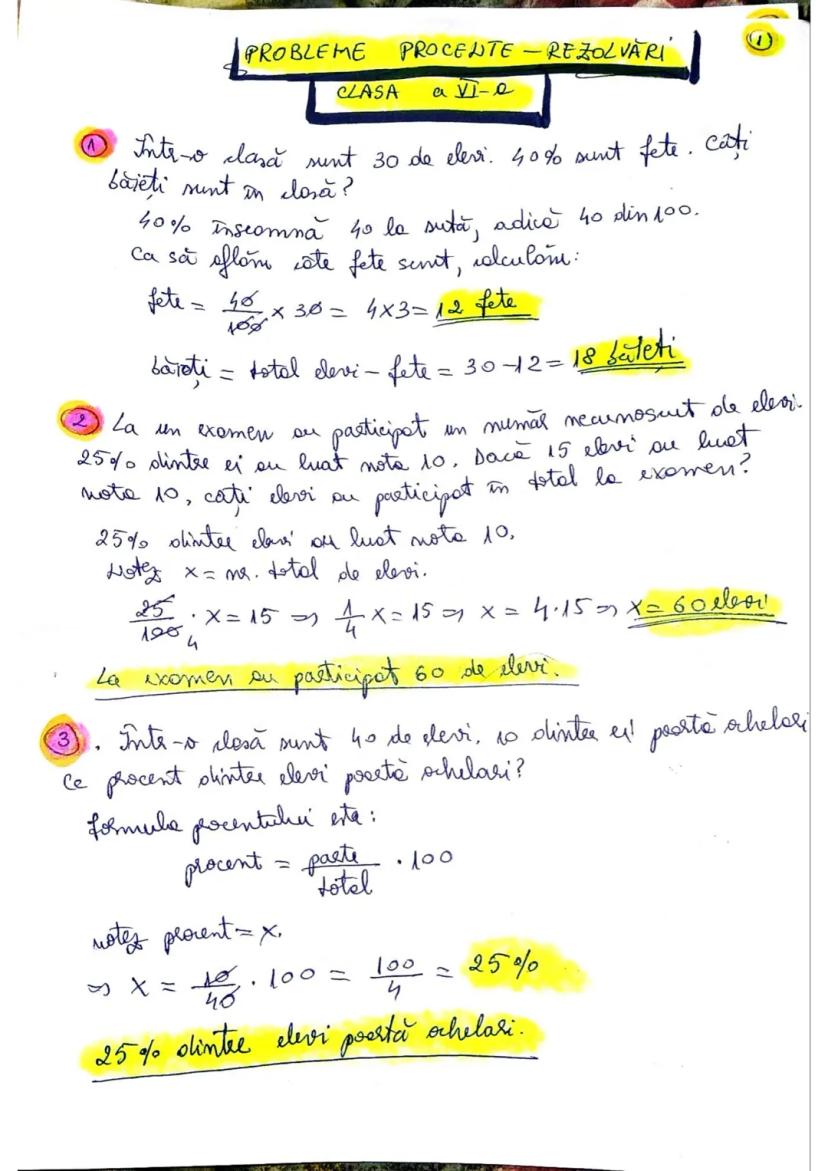 1
PROBLEME PROCENTE – REZOLVĂRI
CLASA a VI-a
1 Într-o clasă sunt 30 de elevi. 40% sunt fete. Câți
băieți sunt în clasă?
40% înseamnă 40 la sută, adică 40 din 100.
Ca să aflăm câte fete sunt, calculăm:
fete = 40/100 × 30 = 4×3 = 12 fete
băieți = total elevi – fete = 30 – 12 = 18 băieți
2 La un examen au participat un număr necunoscut de elevi.
25% dintre ei au luat nota 10. Dacă 15 elevi au luat
nota 10, câți elevi au participat în total la examen?
25% dintre elevi au luat nota 10.
Notez x = nr. total de elevi.
25/100 4 · x = 15 ⇒ 1/4 x = 15 ⇒ x = 4·15 ⇒ x = 60 elevi
La examen au participat 60 de elevi.
3. Într-o clasă sunt 40 de elevi, 10 dintre ei poartă ochelari
Ce procent dintre elevi poartă ochelari?
Formula procentului este:
procent = parte/total · 100
notez procent = x.
⇒ x = 10/40 · 100 = 100/4 = 25%
25% dintre elevi poartă ochelari.